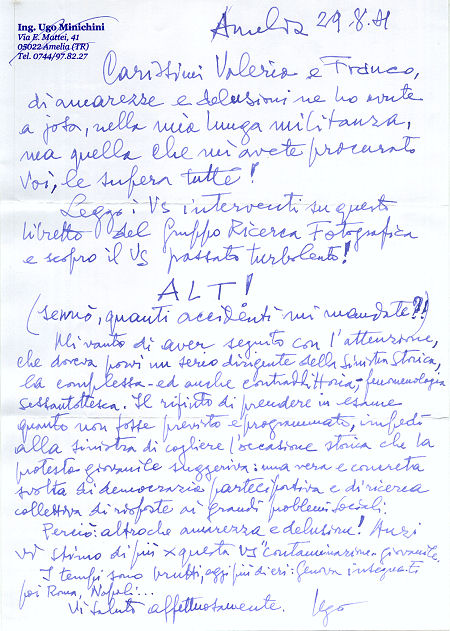 Ing. Ugo Minichini
Via E. Mattei, 41
05022 Amelia (TR)
Tel. 0744/97.82.27
Amelia 29.8.
Carissimi Valeria e Franco,
di amarezze e delusioni ne ho avute
a josa, nella mia lunga militanza,
ma quella che mi avete procurato
voi, le supera tutte!
Leggo i Vs interventi su questo
libretto del Gruppo Ricerca Fotografica
e scopro il Vs passato turbolento!
ALT!
(sennò, quanti accidenti mi mandate?!)
Mi vanto di aver seguito con l'attenzione,
che doveva porvi un serio dirigente della Sinistra Storica,
la complessa - ed anche contraddittoria - fenomenologia
sessantottesca. Il rifiuto di prendere in esame
quanto non fosse previsto e programmato, impedì
alla sinistra di cogliere l'occasione storica che la
protesta giovanile suggeriva: una vera e concreta
svolta di democrazia partecipativa e di ricerca
collettiva di risposte ai grandi problemi sociali.
Perciò: altro che amarezza e delusione! Anzi
vi stimo di più x questa Vs "contaminazione" giovanile.
I tempi sono brutti, oggi più di ieri: Genova insegna. E
poi Roma, Napoli...
Vi saluto affettuosamente. Ugo